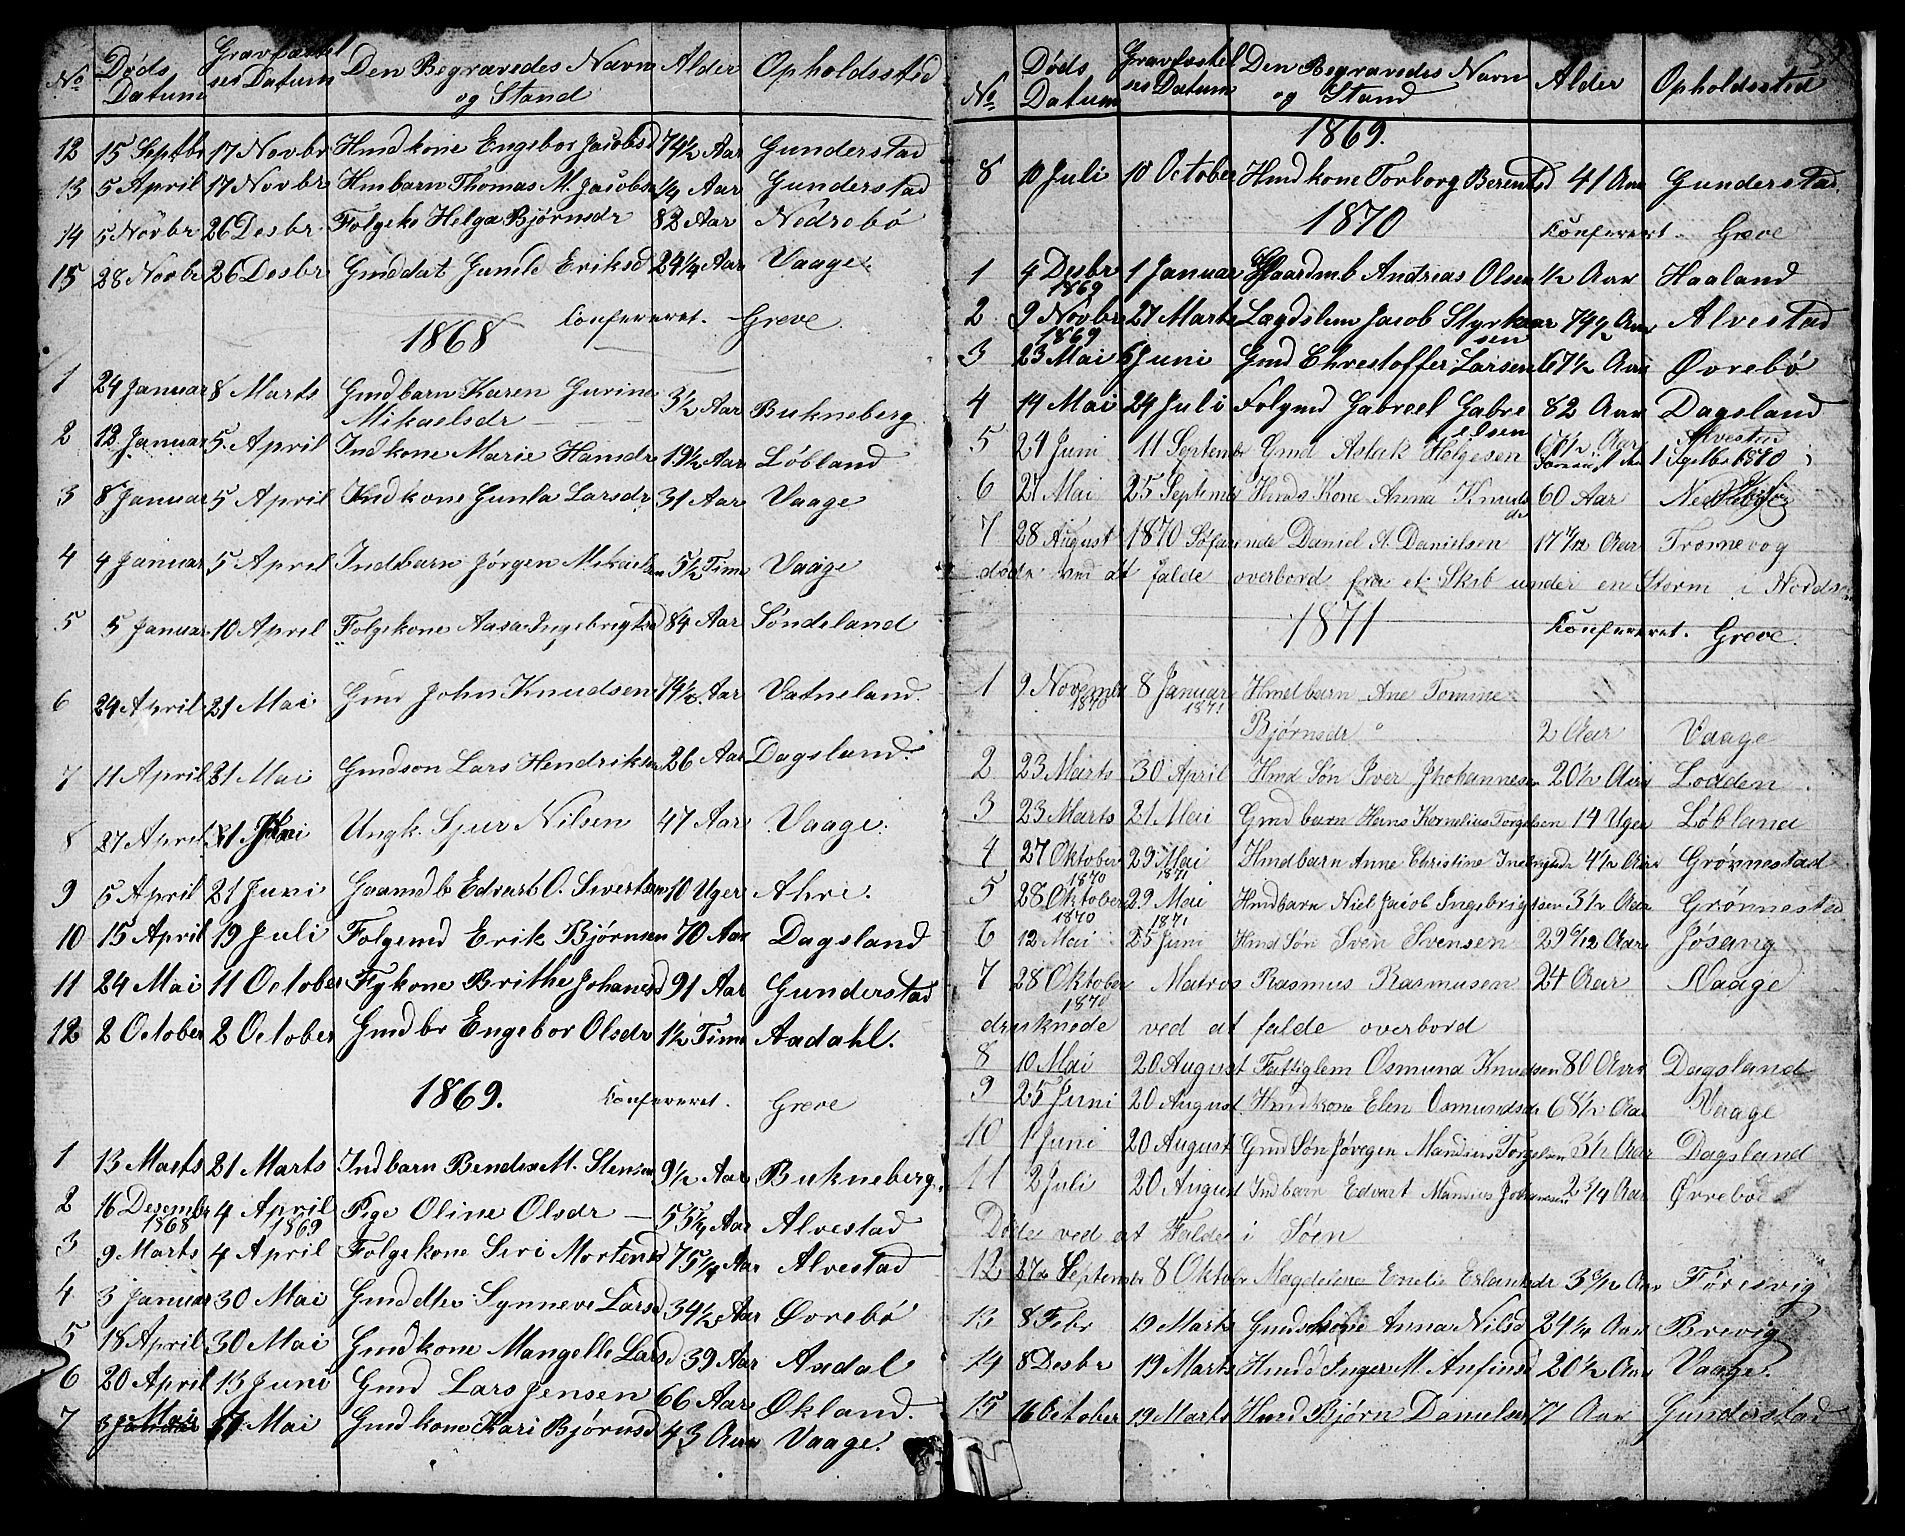 No Døds Datum Gravfæstelses Datum Den Begravedes Navn og Stand Alder Opholdssted
12 15 Septbr 17 Novbr Hmdkone Engebor Jacobsd 74½ Aar Gunderstad
13 5 April 17 Novbr Hmbarn Thomas M. Jacobsn ¼ Aar Gunderstad
14 5 Novbr 26 Desbr Folgeko Helga Bjørnsdr 82 Aar Nedrebö
15 28 Novbr 26 Desbr Gmddat Gunild Eriksd 24¼ Aar Vaage
1868 Confereret. Greve
1 24 Januar 8 Marts Gmdbarn Karen Gurine
Mikaelsdr 3½ Aar Bukneberg
2 12 Januar 5 April Indkone Marie Hansdr 19½ Aar Løbland
3 8 Januar 5 April Indkone Gunla Larsdr 31 Aar Vaage
4 4 Januar 5 April Indbarn Jörgen Mikaelsen 5½ Time Vaage
5 5 Januar 10 April Folgekone Aasa Ingebrigtsd 84 Aar Söndeland
6 24 April 21 Mai Gmd John Knudsen 74½ Aar Vatneland
7 11 April 21 Mai Gmdson Lars Hendriksen 26 Aar Dagsland.
8 27 April 21 Juni Ungk. Sjur Nilsen 47 Aar Vaage.
9 5 April 21 Juni Gaamdb Edvart O. Sivertsen 10 Uger Ahre.
10 15 April 19 Juli Folgemd Erik Bjørnsen 70 Aar Dagsland
11 24 Mai 11 October Fl​gkone Brithe Johanesd 91 Aar Gunderstad
12 2 October 2 October Gmdbr Engebor Olsdr 1½ Time Aadahl.
1869. Confereret. Greve
1 13 Marts 21 Marts Indbarn Bendix M. Stensen 9½ Aar Bukneberg.
2 16 Desembr 1868 4 April 1869 Pige Oline Olsdr 55¼ Aar Alvestad
3 9 Marts 4 April Folgekone Siri Mortensd 75¼ Aar Alvestad
4 3 Januar 30 Mai Gmddtr Synneve Larsd 34½ Aar Øvrebö
5 18 April 30 Mai Gmdkone Mangelle Larsd 39 Aar Aadal
6 20 April 13 Juni Gmd Lars Jensen 66 Aar Økland.
7 Mai 17 Mai Gmdkone Kari Bjørnsd 43 Aar Vaage.
No Døds Datum Gravfæstelses Datum Den Begravedes Navn og Stand Alder Opholdssted
1869.
8 10 Juli 10 October Hmdkone Torborg Berentsd 41 Aar Gunderstad
1870 Confereret. Greve
1 4 Desbr 1869 1 Januar Gaardmb Andreas Olsen ½ Aar Haaland
2 9 Novbr 1869 27 Marts Lægdslem Jacob Styrkaar
sen 74½ Aar Alvestad
3 23 Mai 6 Juni Gmd Chrestoffer Larsen 67½ Aar Øvrebö
4 14 Mai 24 Juli Folgmd Gabreel Gabre
elsen 82 Aar Dagsland
5 24 Juni 11 Septembr Gmd Aslak Helgesen 66½ Aar Alvestad
6 27 Mai 25 Septembr Hmds Kone Anna Knuds
dr 60 Aar
7 28 August 1870 Søfarende Daniel A. Danielsen 17 Aar Tromevog
döde ved at falde overbord fra et Skib under en Storm i Nordsøen
1871 Confereret. Greve.
1 9 Novembr 1870 8 Januar 1871 Hmdbarn Ane Tomine
Bjørnsdr 2 Aar Vaage
2 23 Marts 30 April Hmd Søn Iver Jhohannesen 20½ Aar Lodden.
3 23 Marts 21 Mai Gmd barn Hans Kornelius Torgelsen 14 Uger Løbland
4 27 Oktober 1870 29 Mai 1871 Hmdbarn Anne Christine 4½ Aar Grønnestad
5 28 Oktober 1870 29 Mai 1871 Hmdbarn Niel Jacob Ingebrigtsen 3½ Aar Grønnestad
6 12 Mai 25 Juni Hmd Søn Sven Svensen 29 6/12 Aar Jøsang
7 28 Oktober 1870 Matros Rasmus Rasmusen 24 Aar Vaage
drusknede ved at falde overbord
8 10 Mai 20 August Fattiglem Osmund Knudsen 80 Aar Dagsland
9 25 Juni 20 August Hmdkone Elen Osmundsdr 68½ Aar Vaage
10 1 Juni 20 August Gmd Søn Jövegen Mandius Torgelsen 3½ Aar Dagsland
11 2 Juli 20 August Indbarn Edvart Mandius Johanesen 2 3/4 Aar Øvrebö
Döde ved at Falde i Søen
12 27de Septembr 8 Oktobr Magdelena Emelie Erlandsdr 3 Aar Føresvig
13 8 Febr 19 Marts Gmdskone Anna Nilsd 24¼ Aar Brevig
14 8 Desbr 19 Marts Hmdd Inger M. Anfinsd 20½ Aar Vaage.
15 16 October 19 Marts Hmd Bjørn Danielsen 77 Aar Gunderstad